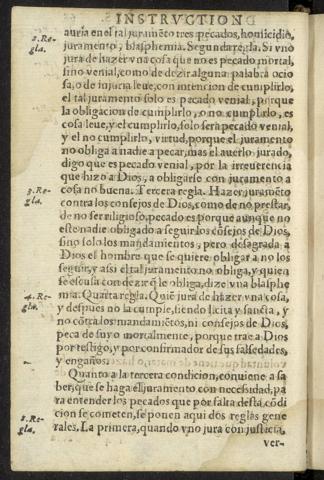 INSTRVCTION D
auria en el tal juramẽto tres pecados, homicidio,
2. Re-
gla.
juramento, blasphemia. Segunda regla. Si vno
jura de hazer vna cosa que no es pecado mortal,
sino venial, como de dezir alguna palabra ocio
sa, o de injuria leue, con intencion de cumplirlo,
el tal juramento solo es pecado venial, porque
la obligacion de cumplirlo, o no cumplirlo, es
cosa leue, y el cumplirlo, solo será pecado venial,
y el no cumplirlo, virtud, porque el juramento
no obliga a nadie a pecar, mas el auerlo jurado,
digo que es pecado venial, por la irreuerencia
que hizo a Dios, a obligarse con juramento a
3. Re-
gla.
cosa no buena. Tercera regla. Hazer juramẽto
contra los consejos de Dios, como de no prestar,
de no ser religioso, pecado es porque aunque no
este nadie obligado a seguir los cõsejos de Dios,
sino solo los mandamientos, pero desagrada a
Dios el hombre que se quiere obligar a no los
seguir, y assi el tal juramento no obliga, y quien
se escusa con dezir q̃ le obliga, dize vna blasphe
4. Re-
gla.
mia. Quarta regla. Quiẽ jura de hazer vna cosa,
y despues no la cumple, siendo licita y sancta, y
no cõtra los mandamiẽtos, ni consejos de Dios,
peca de suyo mortalmente, porque trae a Dios
por testigo, y por confirmador de sus falsedades,
y engaños.
Quanto a la tercera condicion, conuiene a sa
ber, que se haga el juramento con necessidad, pa
ra entender los pecados que por falta desta cõdi
cion se cometen, se ponen aqui dos reglas gene
1. Re-
gla.
rales. La primera, quando vno jura con justicia,
ver-